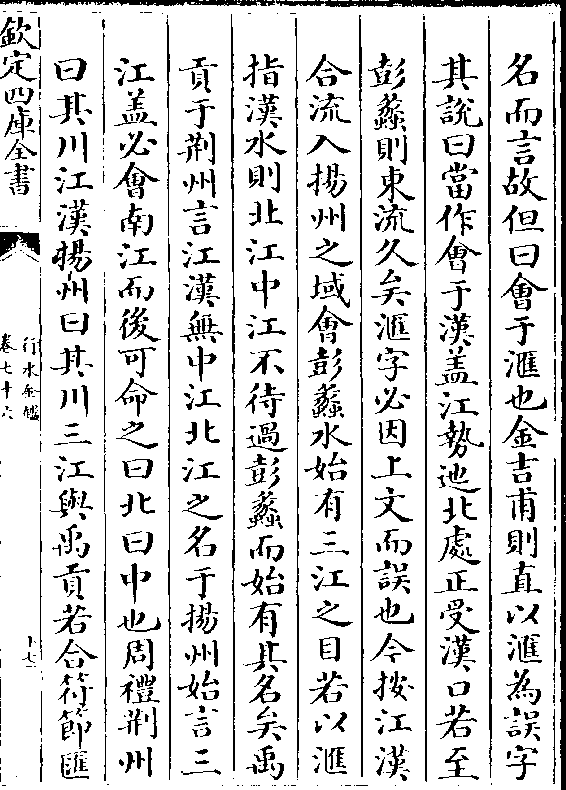 名而言故但曰會于滙也金吉甫則直以滙為誤字
其說曰當作會于漢盖江勢迆北處正受漢口若至
彭蠡則東流久矣滙字必因上文而誤也今按江漢
合流入揚州之域會彭蠡水始有三江之目若以滙
指漢水則北江中江不待過彭蠡而始有其名矣禹
貢于荆州言江漢無中江北江之名于揚州始言三
江盖必會南江而後可命之曰北曰中也周禮荆州
曰其川江漢揚州曰其川三江與禹貢若合符節匯
欽定四庫全書
行水金鑑
卷七十六
十七